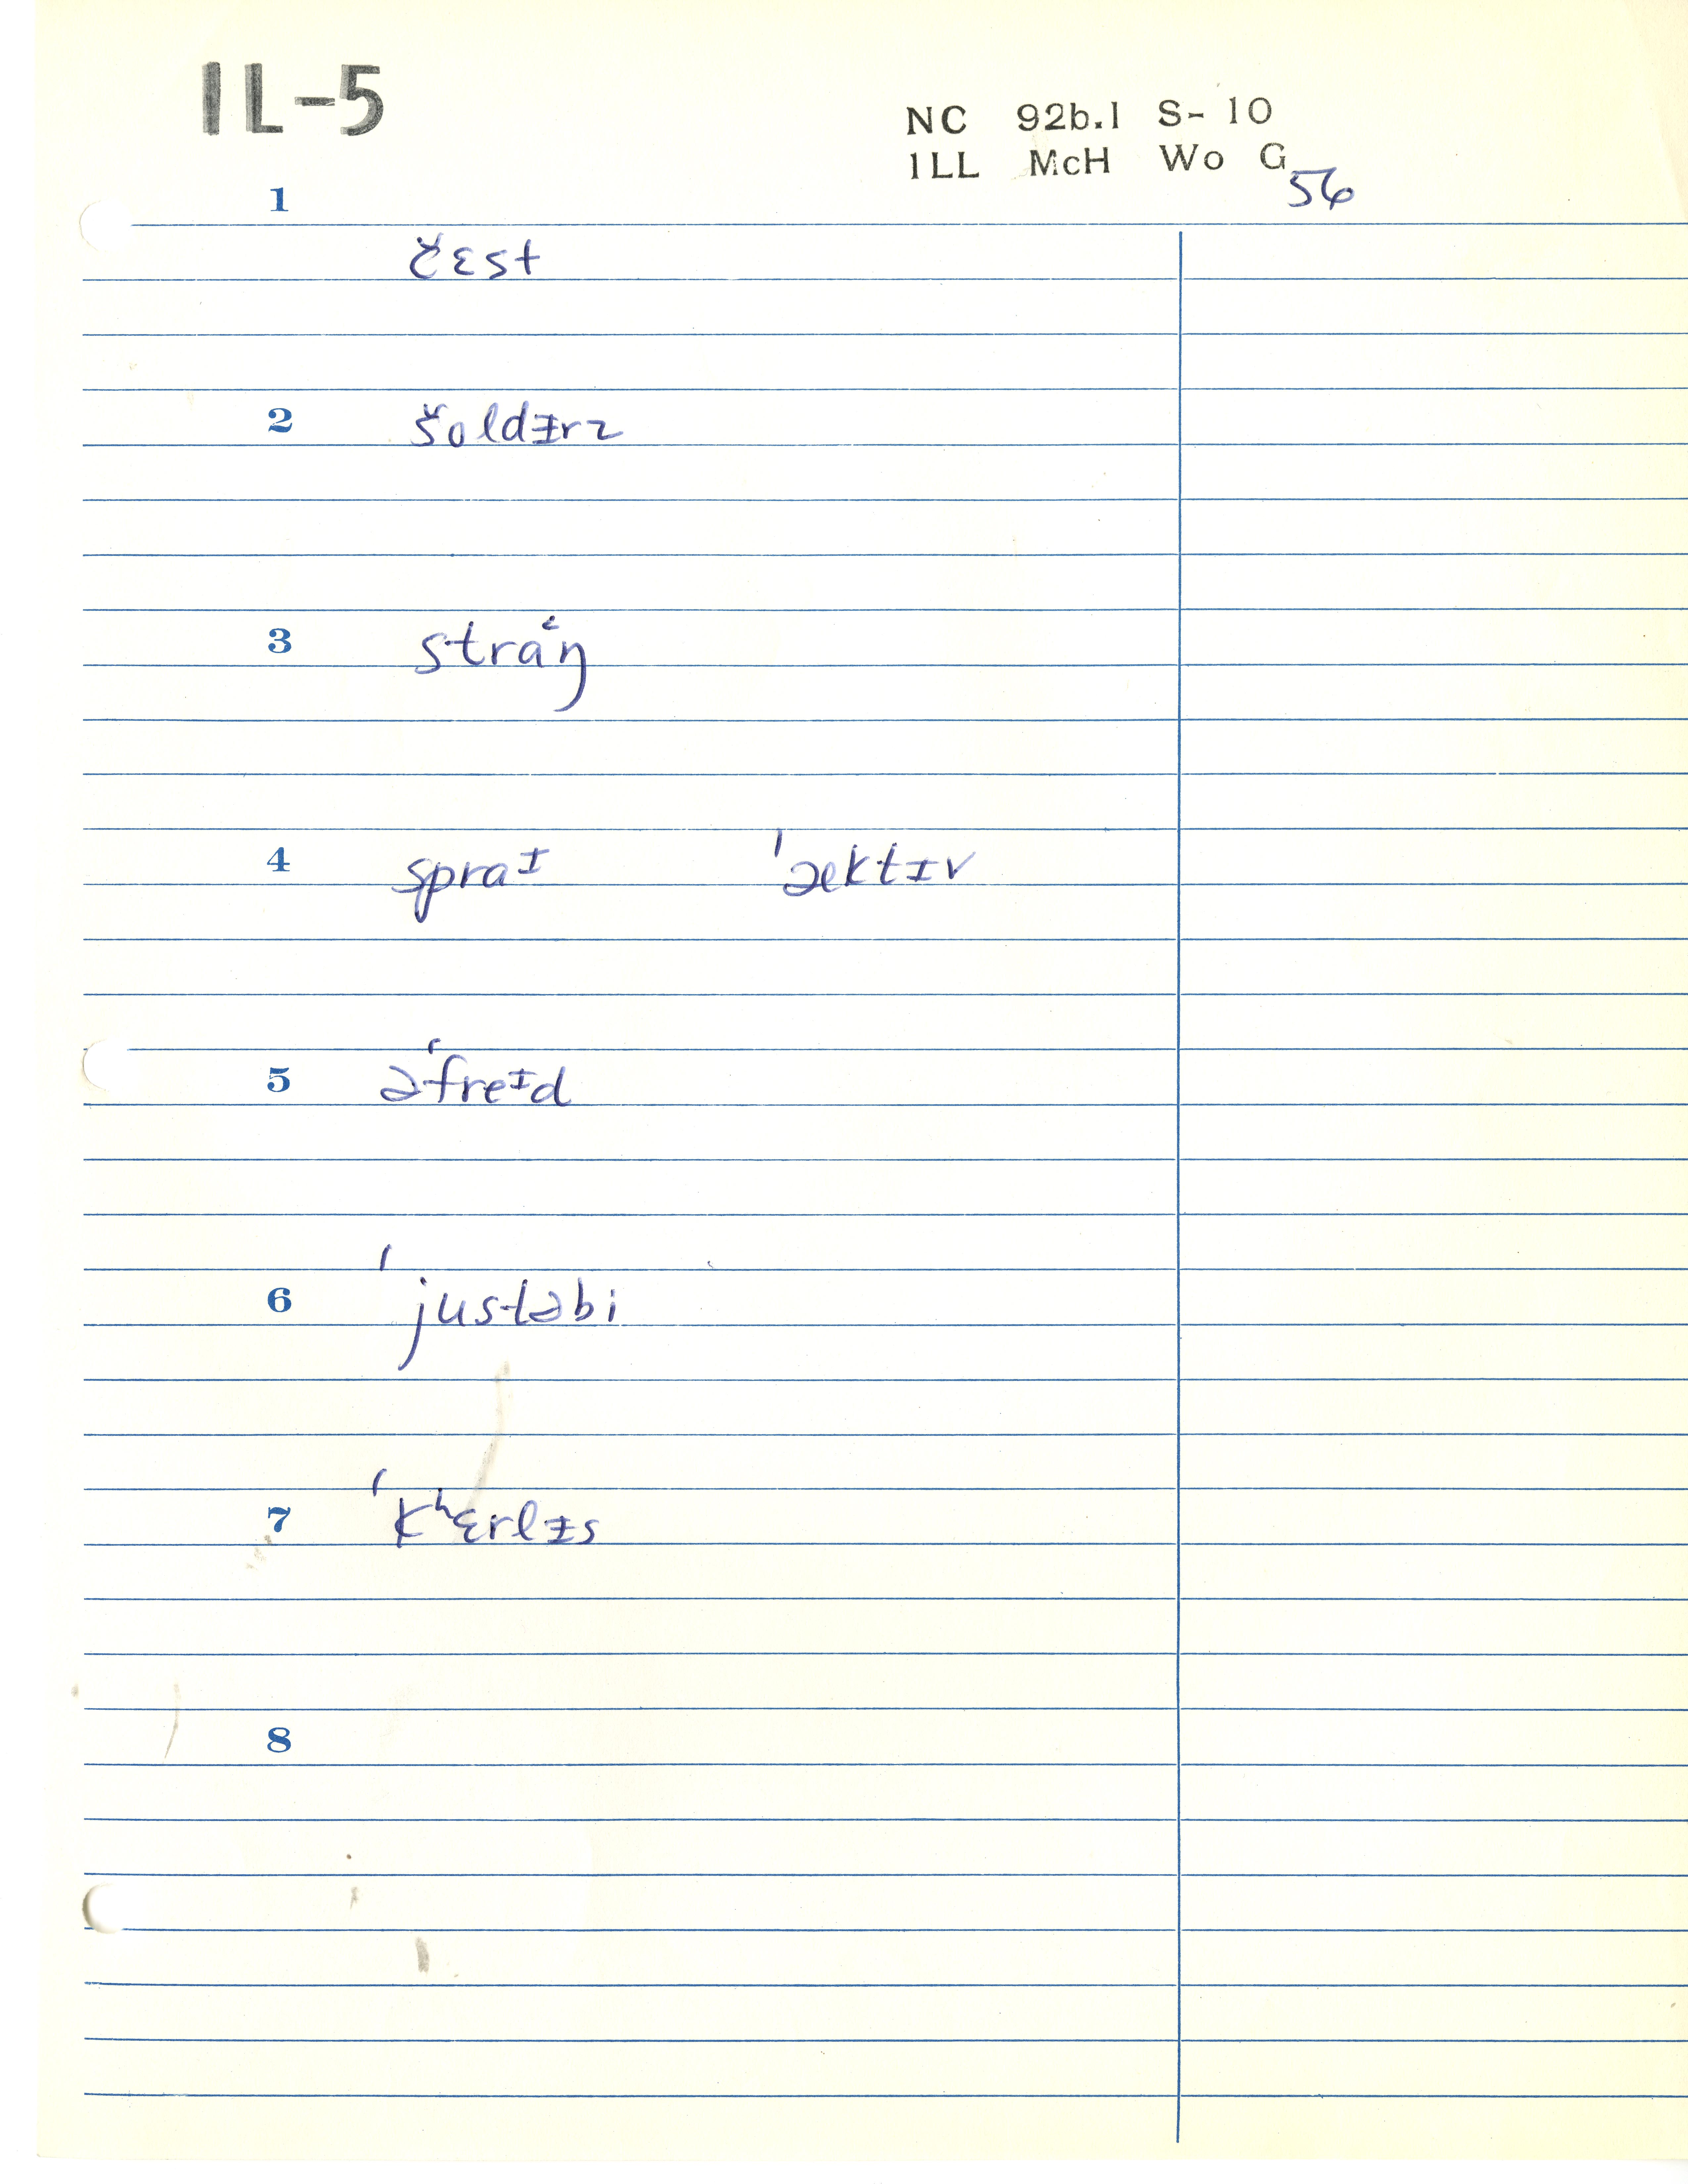 IL-5
NC 92b.1 S-10
ILL McH Wo G
56
1
čɛst
2
šoldɪrz
3
strɑ˂ŋ
4 spraᴵ ˈæktɪv
5 əˈfreᴵd
6 ˈjustəbi
7 ˈkʰɛrlɪs
8